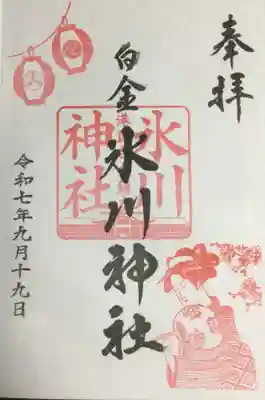 奉拝
白金氷川神社
氷川
神社
令和七年九月十九日